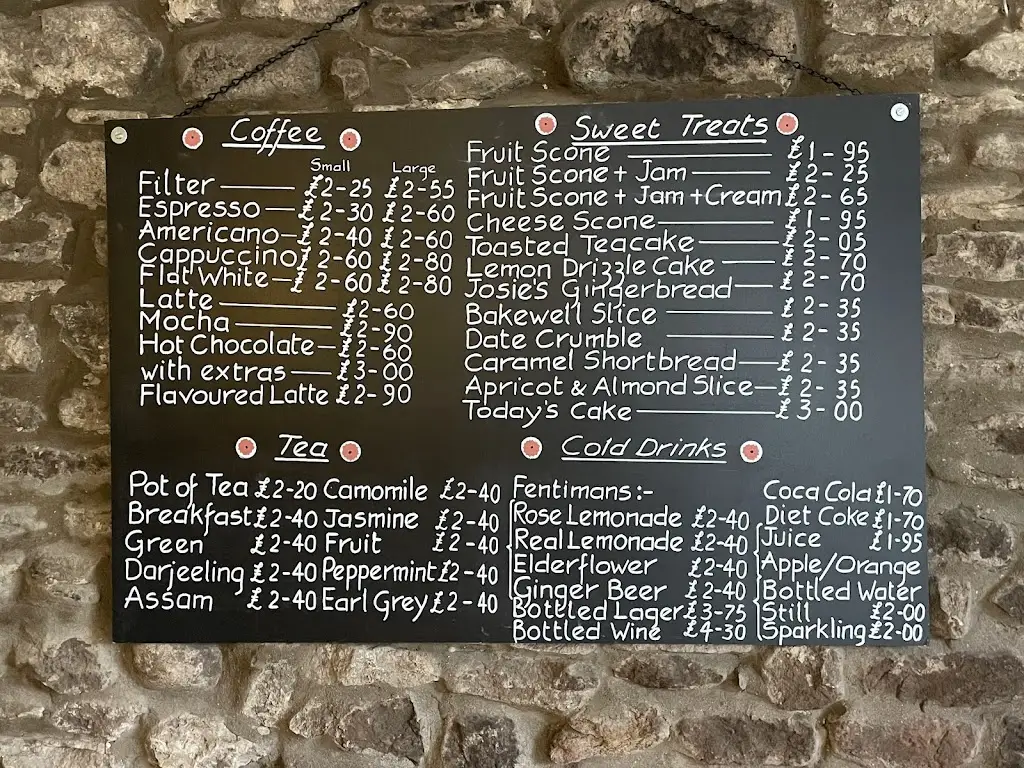 Coffee
Small Large
Filter £2-25 £2-55
Espresso £2-30 £2-60
Americano £2-40 £2-60
Cappuccino £2-60 £2-80
Flat White £2-60 £2-80
Latte £2-60
Mocha £2-90
Hot Chocolate £2-60
with extras £3-00
Flavoured Latte £2-90
Sweet Treats
Fruit Scone £1-95
Fruit Scone + Jam £2-25
Fruit Scone + Jam + Cream £2-65
Cheese Scone £1-95
Toasted Teacake £2-05
Lemon Drizzle Cake £2-70
Josie's Gingerbread £2-70
Bakewell Slice £2-35
Date Crumble £2-35
Caramel Shortbread £2-35
Apricot & Almond Slice £2-35
Today's Cake £3-00
Tea
Pot of Tea £2-20 Camomile £2-40
Breakfast £2-40 Jasmine £2-40
Green £2-40 Fruit £2-40
Darjeeling £2-40 Peppermint £2-40
Assam £2-40 Earl Grey £2-40
Cold Drinks
Fentimans:-
Rose Lemonade £2-40
Real Lemonade £2-40
Elderflower £2-40
Ginger Beer £2-40
Bottled Lager £3-75
Bottled Wine £4-30
Coca Cola £1-70
Diet Coke £1-70
Juice £1-95
Apple/Orange
Bottled Water
Still £2-00
Sparkling £2-00